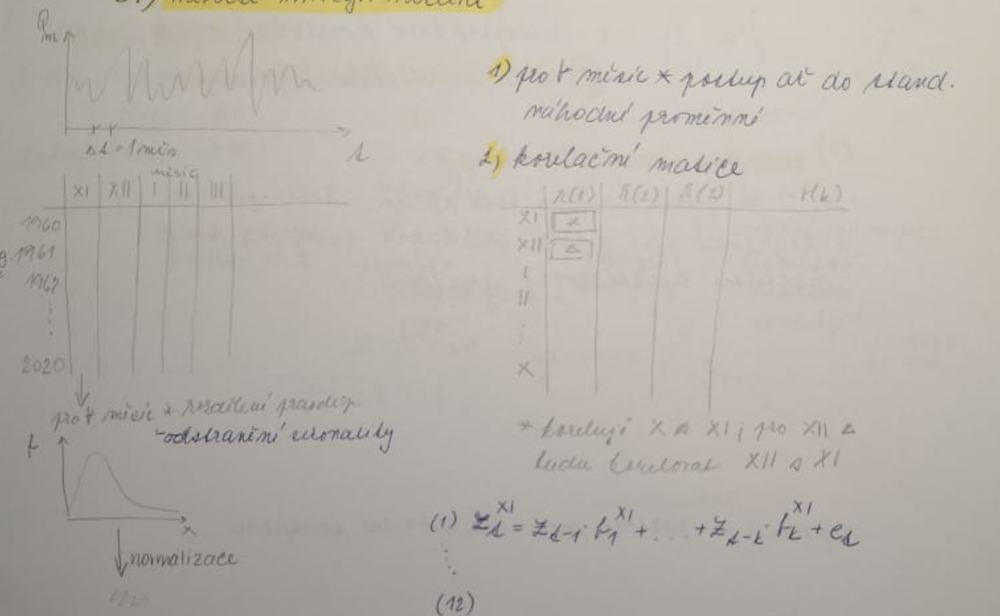 Pm
Δt = 1 měs
t
měsíc
XI XII I II III
1960
1961
1962
2020
pro ∀ měsíc * rozdělení pravděp.
- odstranění sezonality
f
x
normalizace
1) pro ∀ měsíc * postup až do stand.
náhodné proměnné
2) korelační matice
r(1) r(2) r(k)
XI x
XII Δ
I
II
⋮
X
* koreluji X a XI; pro XII Δ
budu korelovat XII a XI
(1) z_t^XI = z_{t-1} · b_1^XI + ... + z_{t-k} · b_k^XI + e_t
⋮
(12)